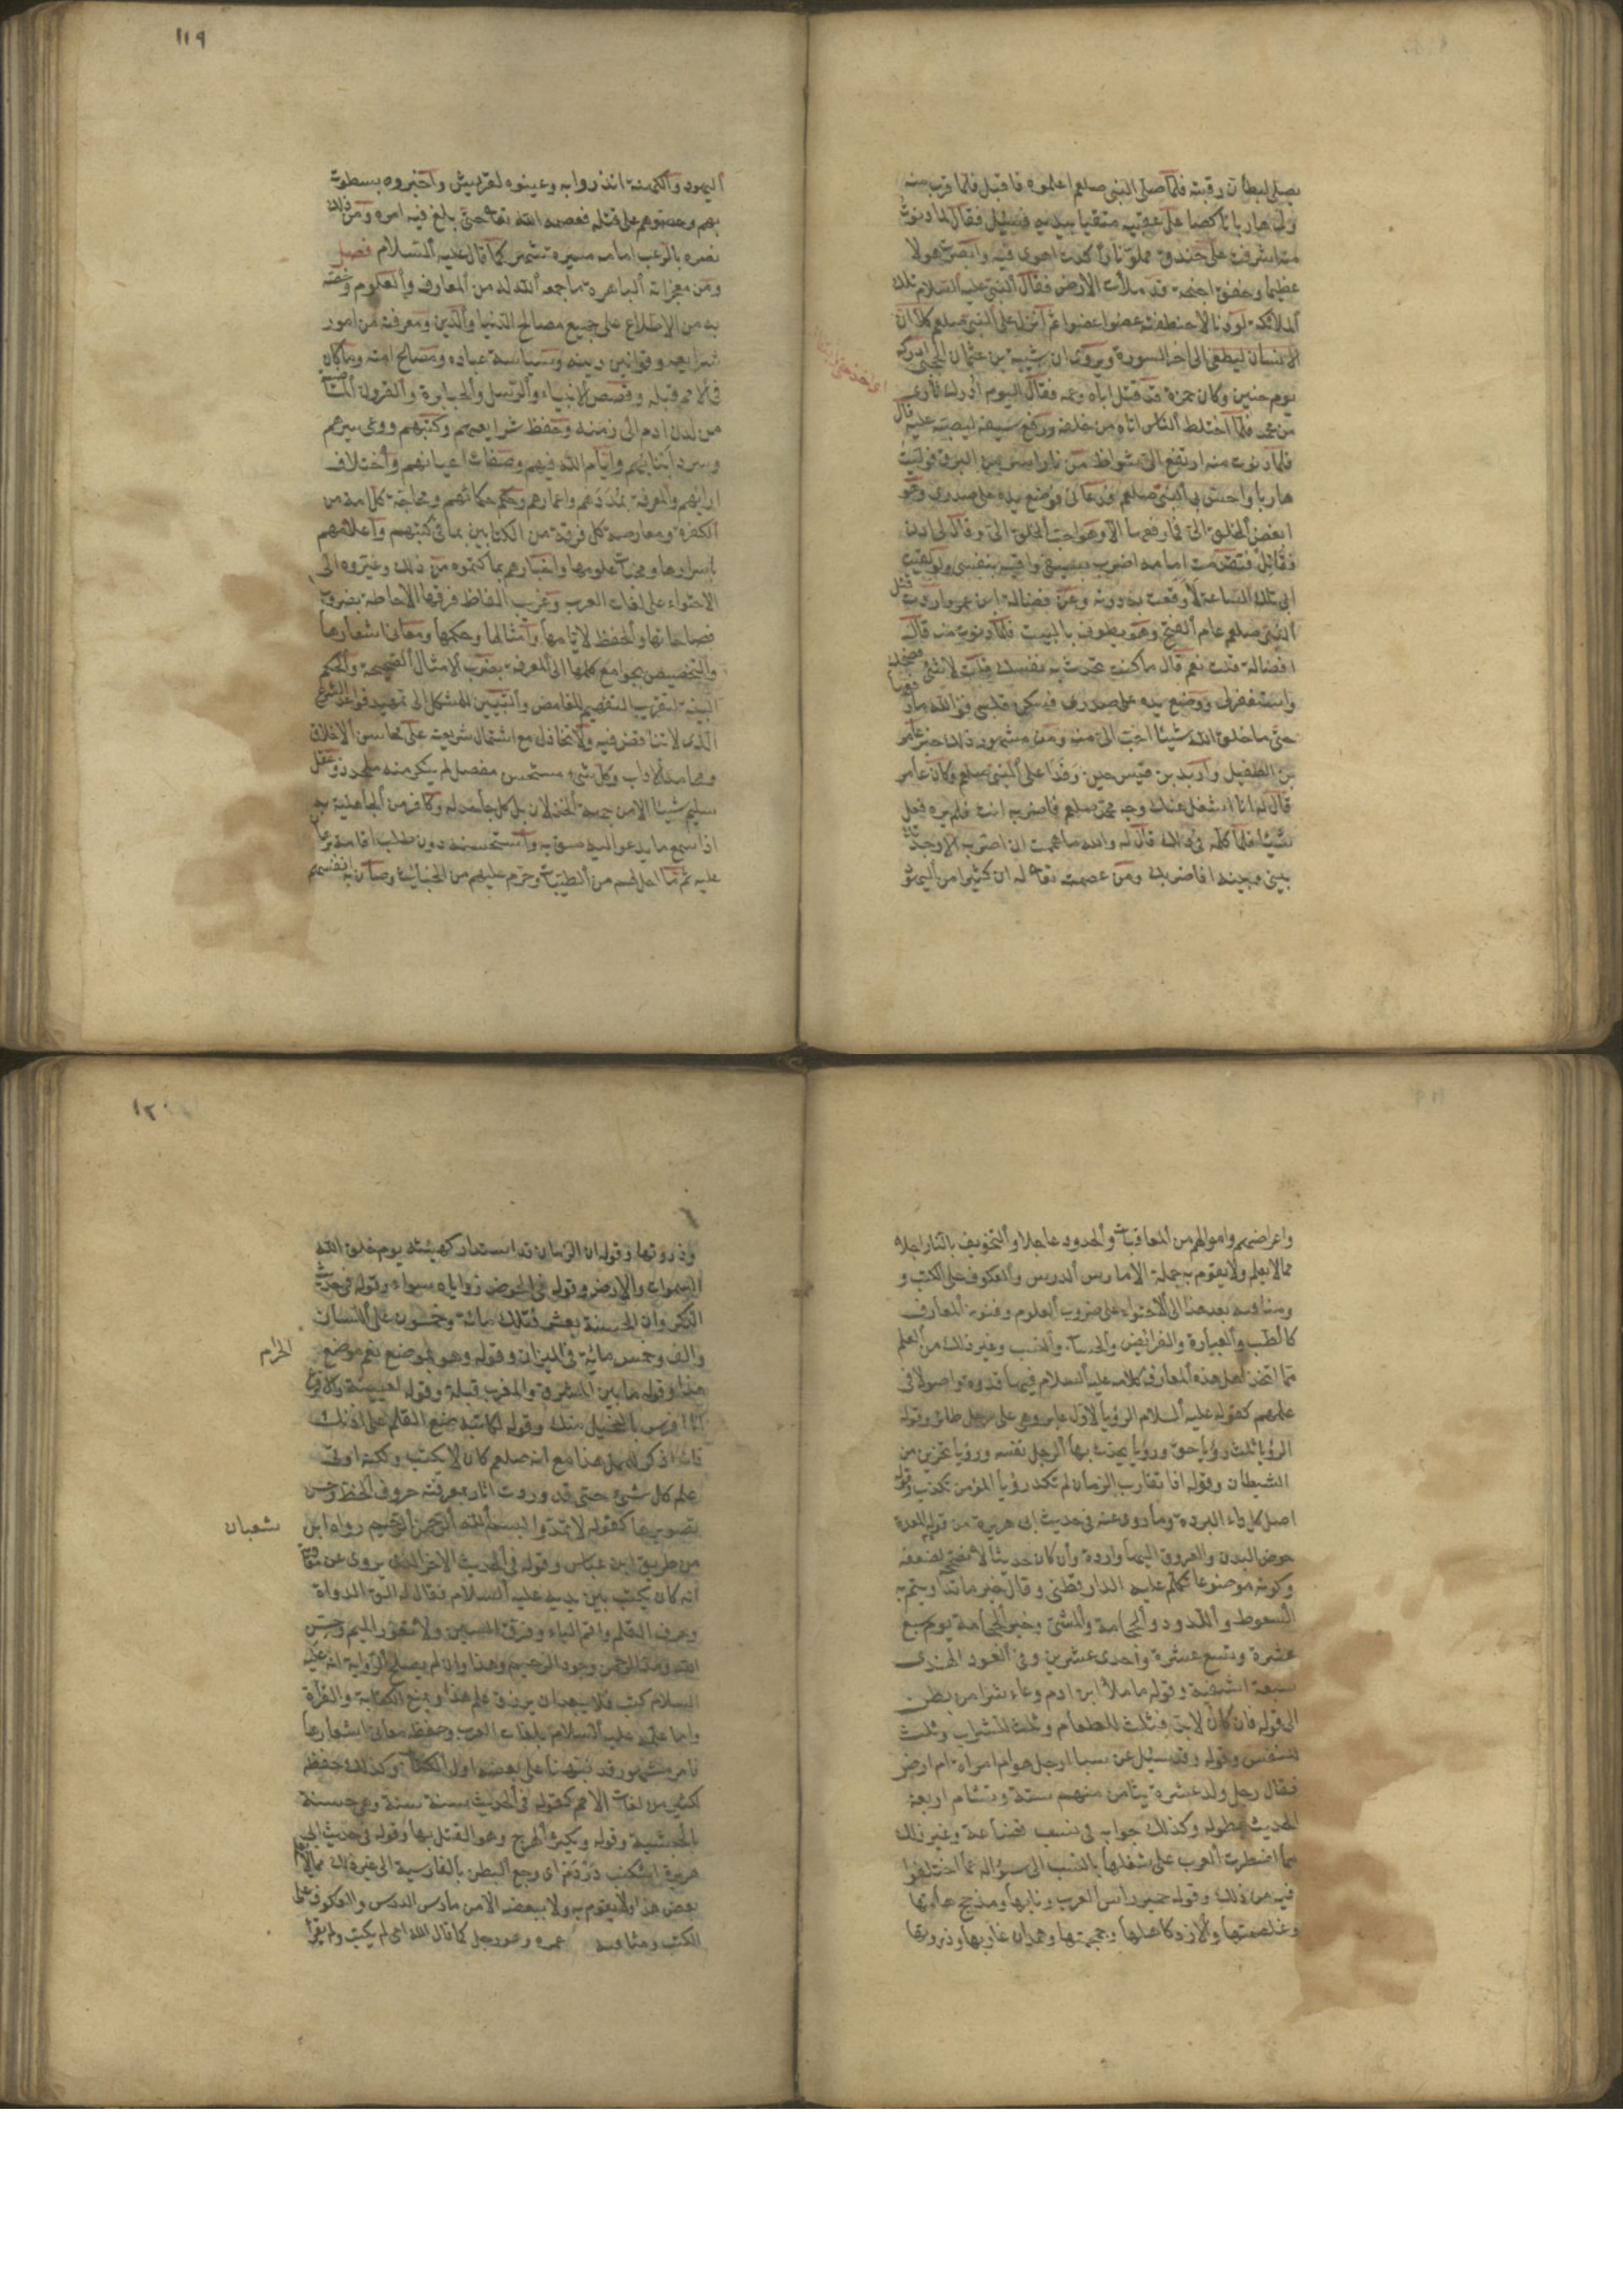 يصلى ليطأن رقبته فلما صلى النبى صلعم اعلموه فاقبل فلما قرب منه
ولى هاربا ناكصا على عقبيه متقيا بيديه فسئل فقال لما دنوت
منه اشرفت على خندق مملو نارا كدت اهوى فيه وابصرت هولا
عظيما وخفق اجنحة قد ملأت الارض فقال النبى عليه السلام تلك
الملائكة لو دنا لاختطفته عضوا عضوا ثم انزل على النبى صلعم كلا ان
الانسان ليطغى الى اخر السورة ويروى ان شيبة بن عثمان الحجبى ادركه
يوم حنين وكان حمزة قد قتل اباه وعمه فقال اليوم ادرك ثارى
من محمد فلما اختلط الناس اتاه من خلفه ورفع سيفه ليصبه عليه قال
فلما دنوت منه ارتفع الى شواظ من نار اسرع من البرق فوليت
هاربا واحس بى النبى صلعم فدعانى فوضع يده على صدرى وهو
ابغض الخلق الى فما رفعها الا وهو احب الخلق الى وقال لى ادن
فقاتل فتقدمت امامه اضرب بسيفى واقيه بنفسى ولو لقيت
ابى تلك الساعة لاوقعت به دونه وعن فضالة ابن عمرو اردت قتل
النبى صلعم عام الفتح وهو يطوف بالبيت فلما دنوت منه قال
افضالة قلت نعم قال ما كنت تحدث به نفسك قلت لا شئ فضحك
واستغفر لى ووضع يده على صدرى فسكن قلبى فوالله ما رفعها
حتى ما خلق الله شيئا احب الى منه ومن مشهور ذلك خبر عامر
بن الطفيل واربد بن قيس حين وفدا على النبى صلعم وكان عامر
قال له انا اشغل عنك وجه محمد صلعم فاضربه انت فلم يره فعل
شيئا فلما كلمه فى ذلك قال له والله ما هممت ان اضربه الا وجدتك
بينى وبينه افاضربك ومن عصمته تعا له ان كثيرا من اليهود
١١٩
اليهود والكهنة انذروا به وعينوه لقريش واخبروهم بسطوته
بهم وحضوهم على قتله فعصمه الله تعا حتى بلغ فيه امره ومن ذلك
نصره بالرعب امامه مسيرة شهر كما قال عليه السلام فصل
ومن معجزاته الباهرة ما جمعه الله له من المعارف والعلوم وخصه
به من الاطلاع على جميع مصالح الدنيا والدين ومعرفته من امور
شرايعه وقوانين دينه وسياسة عباده ومصالح امته وما كان
فى الامم قبله وقصص الانبياء والرسل والجبابرة والقرون الماضية
من لدن ادم الى زمنه وحفظ شرايعهم وكتبهم ووعى سيرهم
وسرد انبائهم وايام الله فيهم وصفات اعيانهم واختلاف
ارائهم والمعرفة بمددهم واعمارهم وحكم حكمائهم ومحاجة كل امة من
الكفرة ومعارضة كل فرقة من الكتابيين بما فى كتبهم واعلامهم
باسرارها ومخبات علومها واخبارهم بما كتموه من ذلك وغيروه الى
الاحتواء على لغات العرب وغريب الفاظ فرقها الاحاطة بضروب
فصاحاتها والحفظ لايامها وامثالها وحكمها ومعانى اشعارها
والتخصيص بجوامع كلمها الى المعرفة بضرب الامثال الصحيحة والحكم
البينة لتقريب التفهيم للغامض والتبيين للمشكل الى تمهيد قواعد الشرع
الذى لا تناقض فيه ولا تخاذل مع اشتمال شريعته على محاسن الاخلاق
ومحامد الاداب وكل شئ مستحسن مفصل لم ينكر منه ملحد ذو عقل
سليم شيئا الا من جهة الخذلان بل كل جاحد له وكافر من الجاهلية به
اذا سمع ما يدعو اليه صوبه واستحسنه دون طلب اقامة برهان
عليه ثم ما احل لهم من الطيبات وحرم عليهم من الخبائث وصان به انفسهم
واعراضهم واموالهم من المعاقبات والحدود عاجلا والتخويف بالنار اجلا
مما لا يعلم ولا يقوم به جملة الا مارس الدرس والعكوف على الكتب و
ومثافنة بعد هذا الى الاحتواء على ضروب العلوم وفنون المعارف
كالطب والعبارة والفرائض والحساب والنسب وغير ذلك من العلم
مما اتخذ اهل هذه المعارف كلامه عليه السلام فيها قدوة واصولا فى
علمهم كقوله عليه السلام الرؤيا لاول عابر وهى على رجل طائر وقوله
الرؤيا ثلث رؤيا حق ورؤيا يحدث بها الرجل نفسه ورؤيا تحزين من
الشيطان وقوله اذا تقارب الزمان لم تكد رؤيا المؤمن تكذب وقوله
اصل كل داء البردة وما روى عنه فى حديث ابى هريرة من قوله المعدة
حوض البدن والعروق اليها واردة وان كان حديثا لا نصححه لضعفه
وكونه موضوعا تكلم عليه الدار قطنى وقال خير ما تداويتم به
السعوط واللدود والحجامة والمشى وخير الحجامة يوم سبع
عشرة وتسع عشرة واحدى عشرين وفى العود الهندى
سبعة اشفية وقوله ما ملأ ابن ادم وعاء شرا من بطن
الى قوله فان كان لابد فثلث للطعام وثلث للشراب وثلث
للنفس وقوله وقد سئل عن سبا ارجل هو ام امراة ام ارض
فقال رجل ولد عشرة تيامن منهم ستة وتشام اربعة
الحديث بطوله وكذلك جوابه فى نسب قضاعة وغير ذلك
مما اضطرت العرب على شغلها بالنسب الى سؤاله عما اختلفوا
فيه من ذلك وقوله حمير راس العرب ونابها ومذحج هامتها
وغلصمتها والازد كاهلها وجمجمتها وهمدان غاربها وذروتها
١٢٠
وذروتها وقوله ان الزمان قد استدار كهيئته يوم خلق الله
السموات والارض وقوله فى الحوض زواياه سواء وقوله فى حديث
الذكر وان الحسنة بعشر فتلك مائة وخمسون على اللسان
والف وخمس مائة فى الميزان وقوله وهو بموضع نعم موضع
الحمام
هذا وقوله ما بين المشرق والمغرب قبلة وقوله لعيينة والاقرع
انا افرس بالخيل منك وقوله لكاتبه ضع القلم على اذنك
فانه اذكر للممل هذا مع انه صلعم كان لا يكتب ولكنه اوتى
علم كل شئ حتى قد وردت اثار بمعرفته حروف الخط وحسن
تصويرها كقوله لا تمدوا بسم الله الرحمن الرحيم رواه ابن
شعبان
من طريق ابن عباس وقوله فى الحديث الاخر الذى يروى عن معاوية
انه كان يكتب بين يديه عليه السلام فقال له الق الدواة
وحرف القلم واقم الباء وفرق السين ولا تعور الميم وحسن
الله ومد الرحمن وجود الرحيم وهذا وان لم يصح الرواية انه عليه
السلام كتب فلا يبعد ان يرزق علم هذا ويمنع الكتابة والقراة
واما علمه عليه السلام بلغات العرب وحفظه معانى اشعارها
فامر مشهور قد نبهنا على بعضه اول الكتاب وكذلك حفظه
لكثير من لغات الامم كقوله فى الحديث سنة سنة وهى حسنة
بالحبشية وقوله ويكثر الهرج وهو القتل بها وقوله فى حديث ابى
هريرة اشكنب دردم اى وجع البطن بالفارسية الى غير ذلك مما لا يعلم
بعض هذا ولا يقوم به ولا ببعضه الا من مارس الدرس والعكوف على
الكتب ومثافنة عمره وهو رجل كما قال الله امى لم يكتب ولم يقرأ